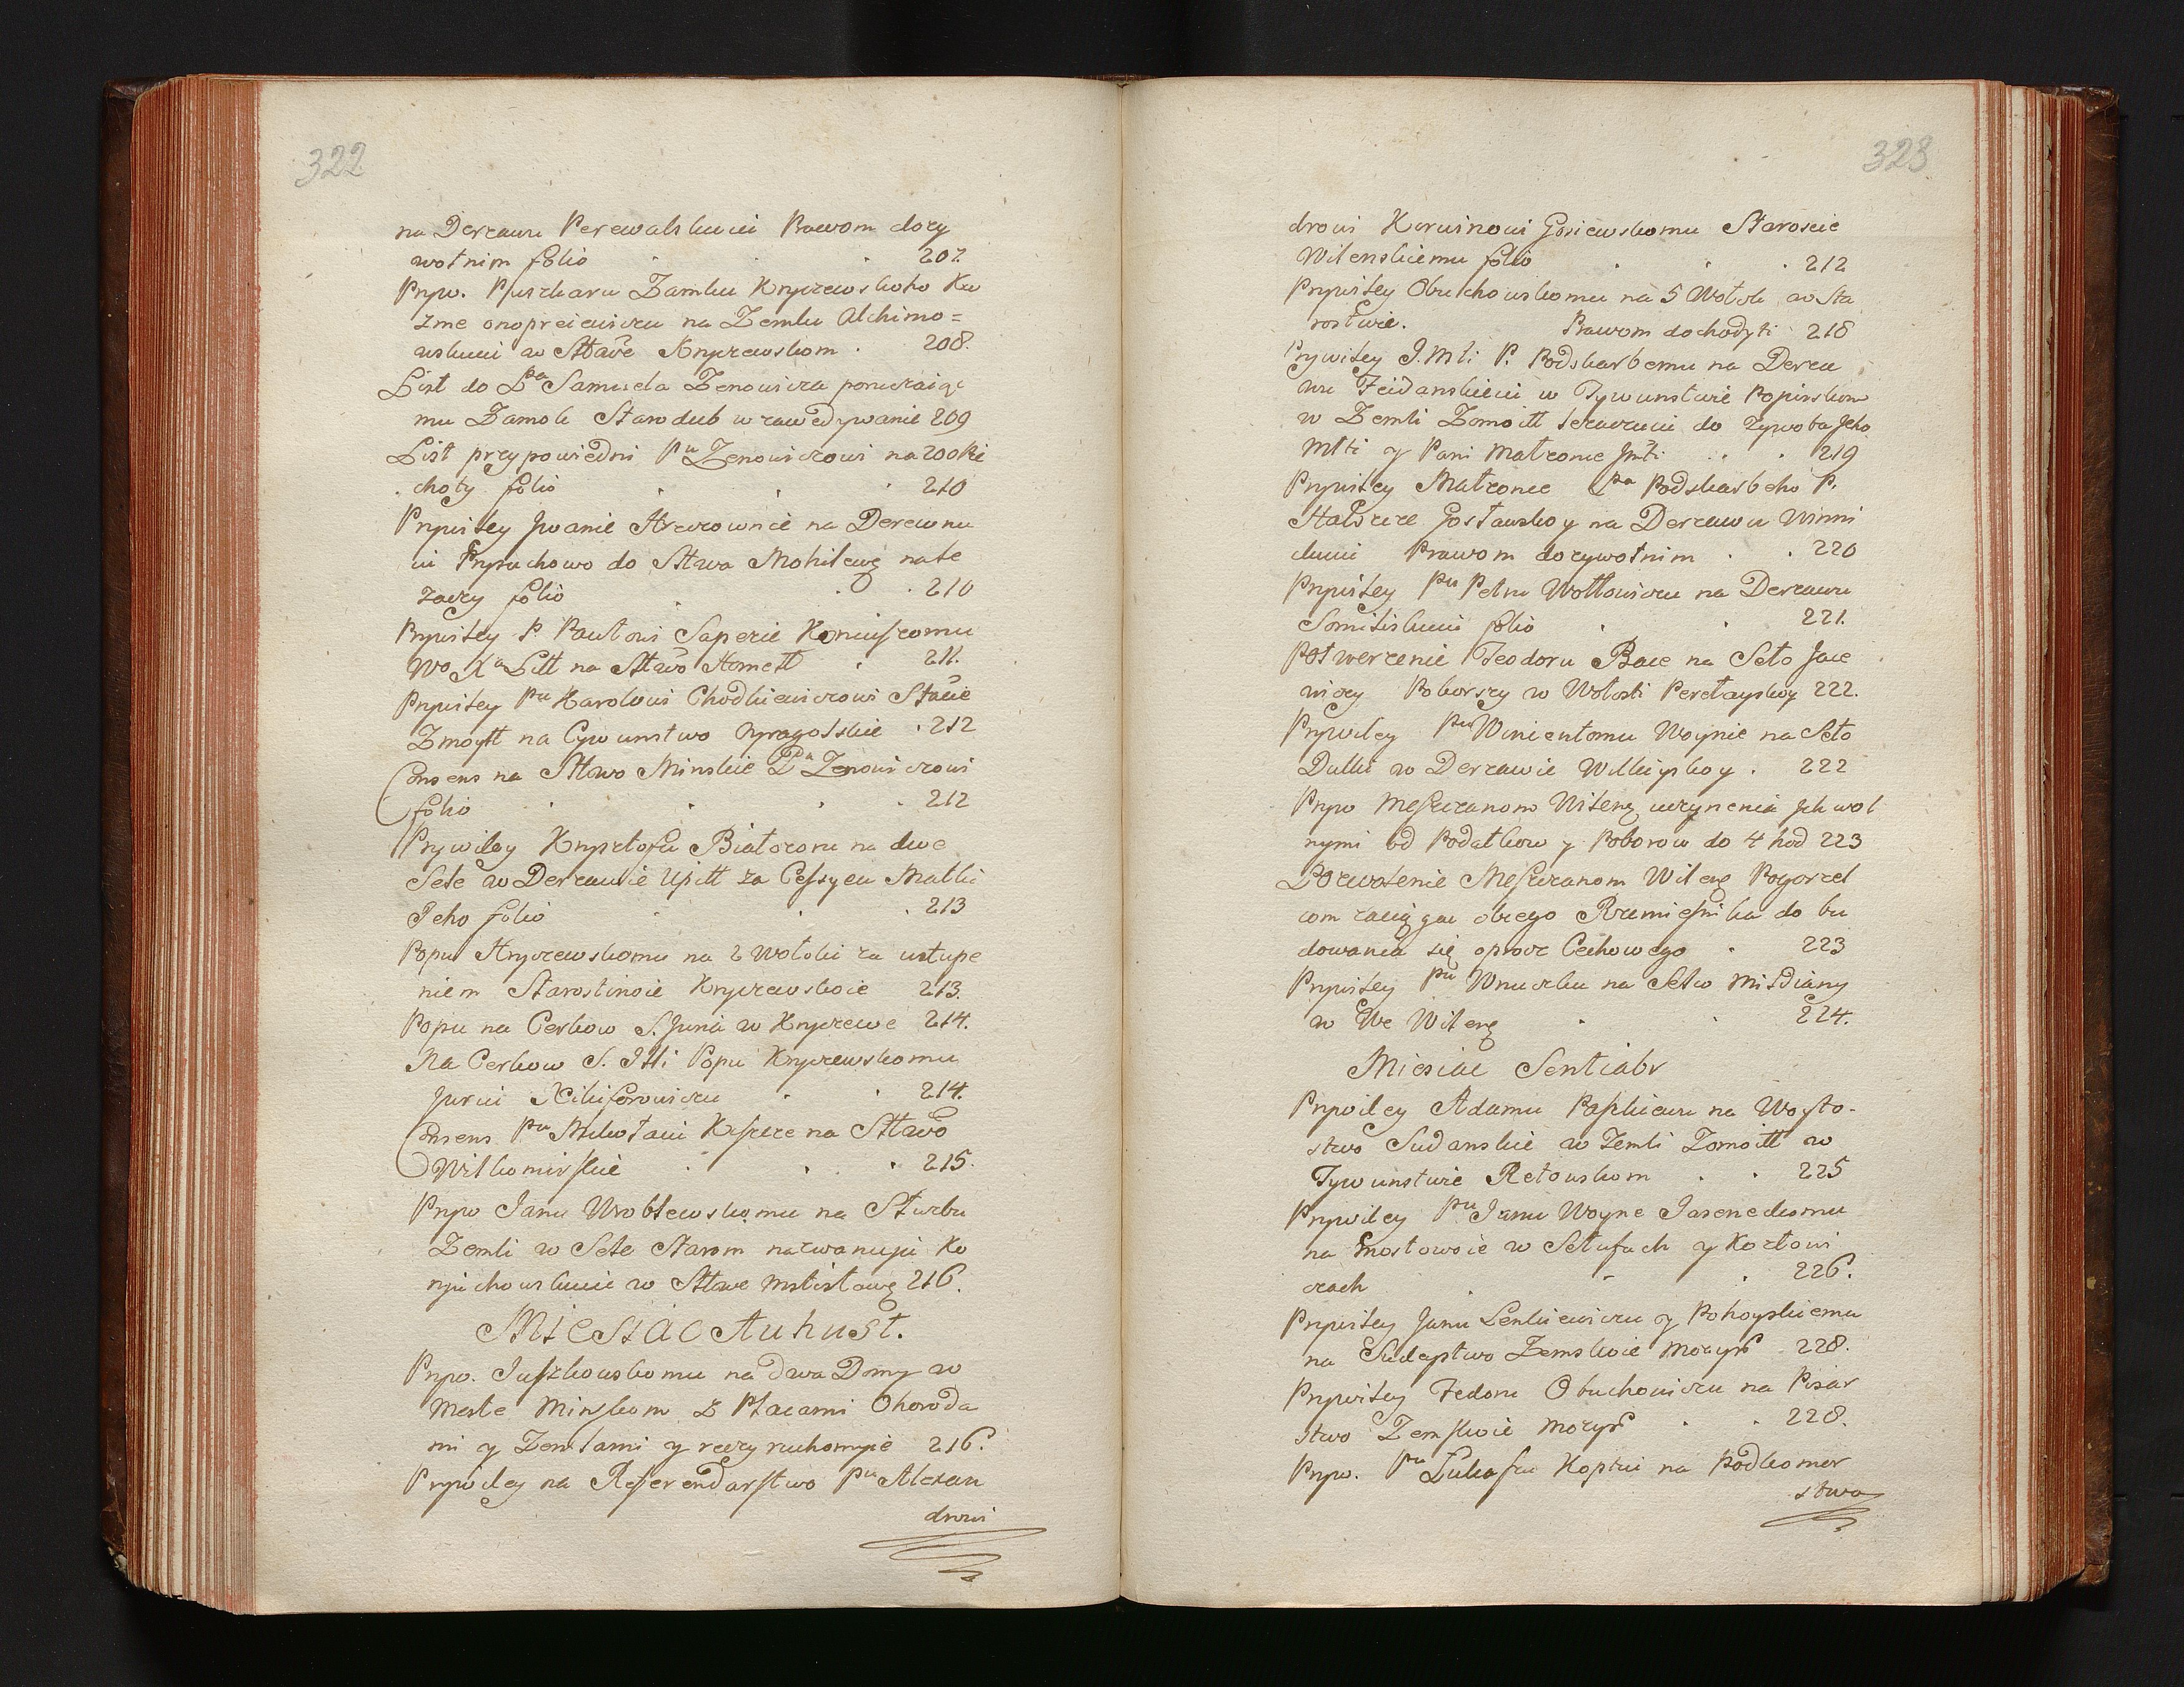 322
na Derzawu Perewalskuiu Prawom dozy
wotnim folio 207.
Pryw. Puszkaru Zamku Kryczewskoho Ku
zme onopreiewiczu na Zemlu Alchimo=
wskuiu w Sttwe Kryczewskom . 208.
List do Pa Samuela Zenowicza poruczaiąc
mu Zamok Starodub w zawedywanie 209
List przypowiedni Pu Zenowiczowi na 200 Pie
choty folio 210
Prywiley Jwanie na Derewnu
iu Prypuchowo do Sttwa Mohilewę na le
zaczy folio 210
Prywiley P. Pawłowi Sapezie Koniuszomu
Wo Xa Litt na Sttwo Homett 211.
Prywiley Pu Karolowi Chodkiewiczowi Staie
Zmoytt na Cywunstwo 212
Consens na Sttwo Minskie Pa Zenowiczowi
folio 212
Prywiley Krysztofu Białozoru na dwe
Sele w Derzawie Upitt za Cessyeu Matki
Jeho folio 213
Popu Kryczewskomu na 2 Wołoki za ustupe
niem Starostinoie Kryczewskoie 213.
Popu na Cerkow S. Juria w Kryczewe 214.
Na Cerkow S. Illi Popu Kryczewskomu
Jurui Nikiforowiczu 214.
Consens Pu Mikołaiu Kiszce na Sttwo
Wilkomirskie 215.
Pryw Janu Wroblewskomu na Służbu
Zemli w Sele Starom nazwanuju Ko
njuchowskuiu w Sttwe Mstisławę 216.
Miesiac Auhust.
Pryw. Juszkowskomu na dwa Domy w
Meste Minskom z Placami Ohoroda
mi y Zemlami y reczy ruchomyie 216.
Prywiley na Referendarstwo Pu Alexan
drowi
328
drowi Korwinowi Gosiewskomu Staroscie
Wilenskiemu folio 212
Prywiley Obuchowskomu na 5 Wołok w Sta
rostwie. Prawom dochodyti 218
Prywiley J. Mti P. Podskarbemu na Derza
wu Feidanskuiu w Tywunstwie Popinskom
w Zemli Zomoitt do Zywota Jeho
Mtti y Pani Matzonce Jmti . . 219
Prywiley Matzonce Pa Podskarbeho P.
Halszce Gostawskoy na Derzawu Winni
ckuiu Prawom dozywotnim . . 220
Prywiley Pu Petru Wołłowiczu na Derzawu
Somiliskuiu folio 221.
Potwerzenie Teodoru Bace na Seło Jace
wiczy Poborszy w Wołosti Perełayskoy 222.
Prywiley Pu Winientomu Woynie na Seło
Dulki w Derzawie Wilkiyskoy . 222
Pryw Meszczanom Wilenę uczynenia Jch wol
nymi od Podatkow y Poborow do 4 hod 223
Pozwolenie Meszczanom Wilenę Pogorzel
com zaciągac obcego Rzemieśnika do bu
dowania się oprocz Cechowego . 223
Prywiley Pu Wnuczku na Seło Misdiany
w We Wilenę 224.
Miesiac Sentiabr
Prywiley Adamu Paszkiewu na Woyto-
stwo Sudanskie w Zemli Zomoitt w
Tywunstwie Retowskom . . 225
Prywiley Pu Janu Woyne Jasenedkomu
na Mostowoie w Sełusach y Kozłowi
czach 226.
Prywiley Janu Lenkiewiczu y Pohoyskiemu
na Sudeystwo Zemskoie Mozyr 228.
Prywiley Fedoru Obuchowiczu na Pisar
stwo Zemskoie Mozyr . . 228.
Pryw. Pu Łukaszu Koptiu na Podkomor
stwo